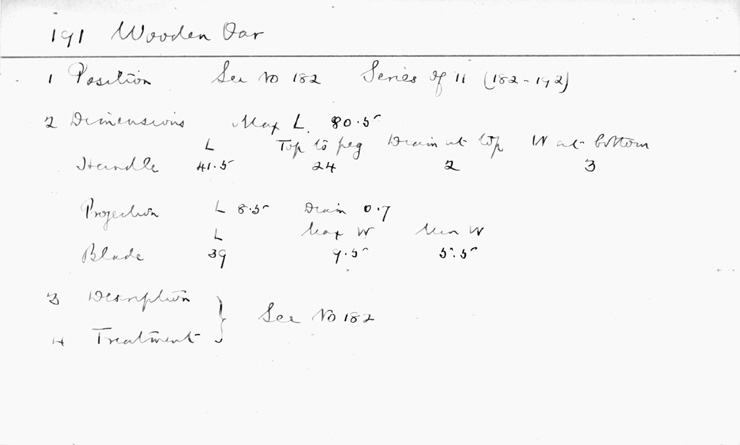 191 Wooden Oar
1 Position See No 182 Series of 11 (182-192)
2 Dimensions Max L. 80.5
L Top to peg Diam at top W at bottom
Handle 41.5 24 2 3
Projection L 8.5 Diam 0.7
L Max W Min W
Blade 39 9.5 5.5
3 Description
See No 182
4 Treatment